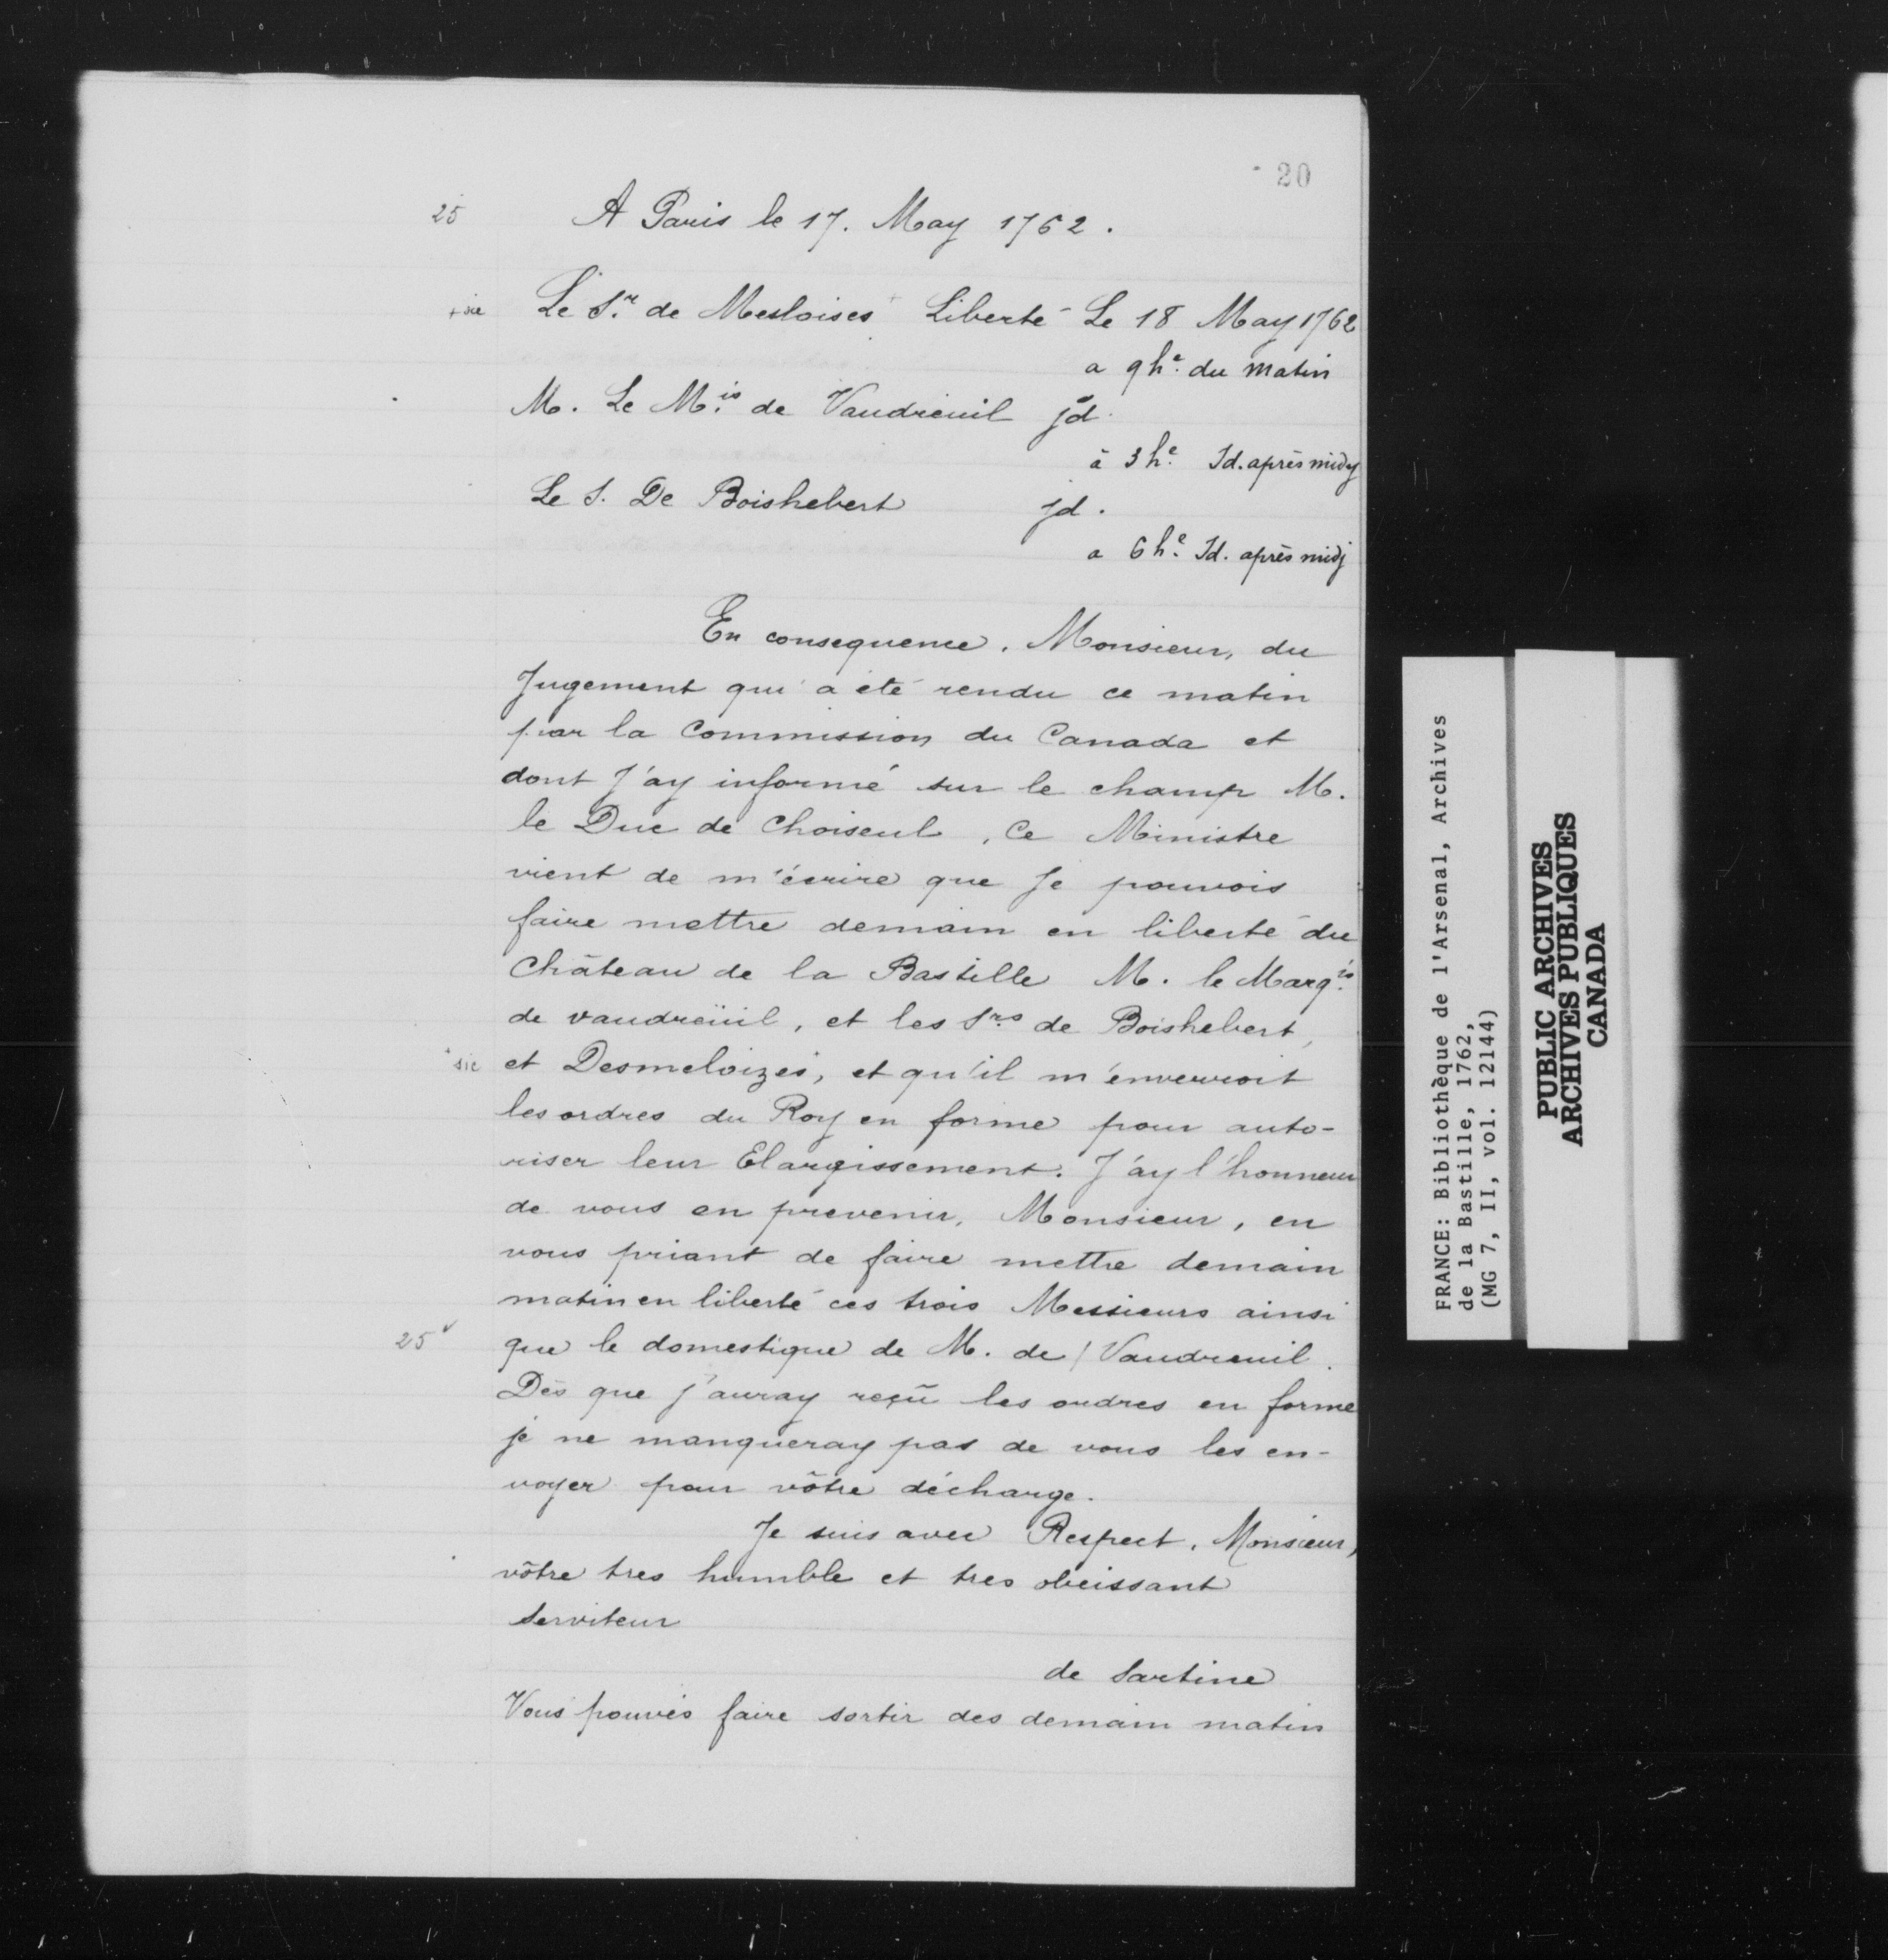 20
25 A Paris le 17. May 1762.
+ sic Le Sr. de Mesloises + Liberté Le 18 May 1762
a 9 he. du matin
M. Le Mis. de Vaudreuil jd.
à 3 he. Id. après midy
Le S. De Boishebert jd.
a 6 he. Id. après midj
En consequence, Monsieur, du
Jugement qui a été rendu ce matin
par la Commission du Canada et
dont J'ay informé sur le champ M.
le Duc de Choiseul, Ce Ministre
vient de m'écrire que Je pouvois
faire mettre demain en liberté du
Château de la Bastille M. le Marqis.
de vaudreüil, et les Srs. de Boishebert,
+ sic et Desmeloizes+, et qu'il m'enverroit
les ordres du Roy en forme pour auto-
riser leur Elargissement. J'ay l'honneur
de vous en prevenir, Monsieur, en
vous priant de faire mettre demain
matin en liberté ces trois Messieurs ainsi
25v que le domestique de M. de / Vaudreuil.
Dès que j'auray reçû les ordres en forme
je ne manqueray pas de vous les en-
voyer pour vôtre décharge.
Je suis avec Respect, Monsieur,
vôtre tres humble et tres obeissant
Serviteur
de Sartine
Vous pouvés faire sortir des demain matin
FRANCE: Bibliothèque de l'Arsenal, Archives
de la Bastille, 1762,
(MG 7, II, vol. 12144)
PUBLIC ARCHIVES
ARCHIVES PUBLIQUES
CANADA